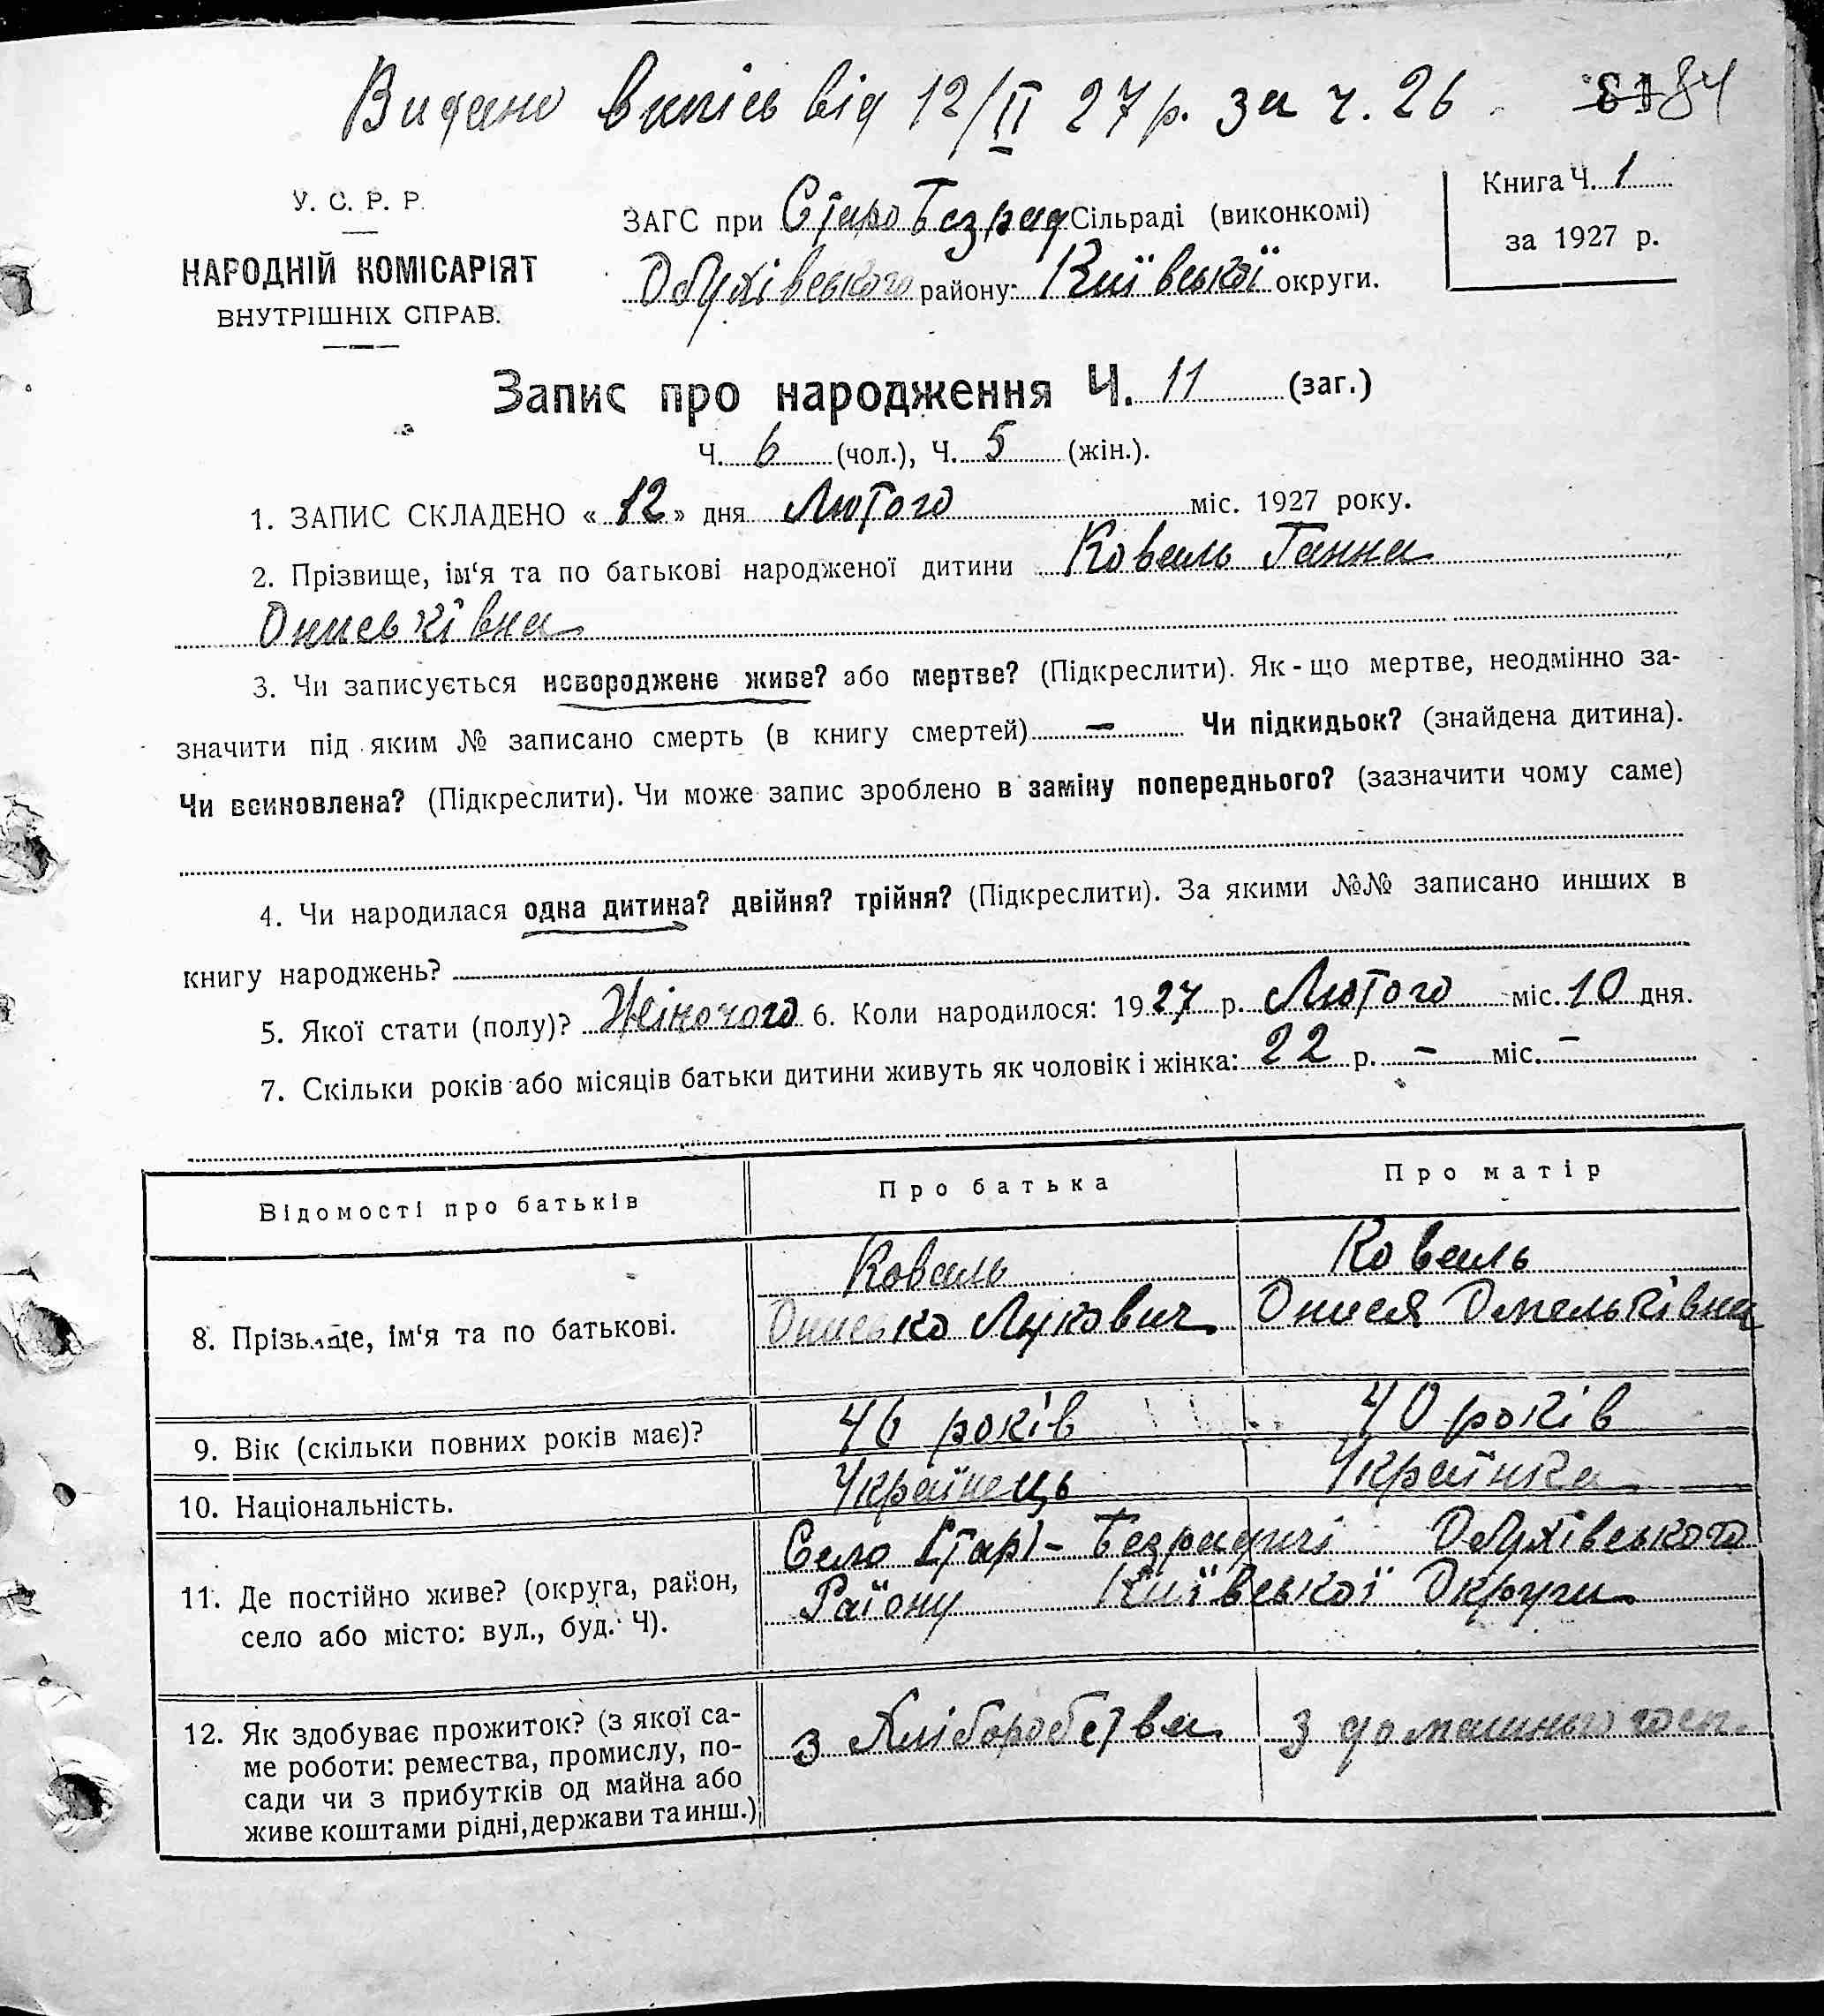 Видано випісь від 12/II 27 р. за ч. 26. 84
У. С. Р. Р.
НАРОДНІЙ КОМІСАРІЯТ
ВНУТРІШНІХ СПРАВ.
ЗАГС при Старо Безрад Сільраді (виконкомі)
Обухівського району: Київської округи.
Книга Ч. 1
за 1927 р.
Запис про народження Ч. 11 (заг.)
Ч. 6 (чол.), Ч. 5 (жін.).
1. ЗАПИС СКЛАДЕНО «12» дня Лютого міс. 1927 року.
2. Прізвище, ім‘я та по батькові народженої дитини Коваль Ганна
Ониськівна
3. Чи записується новороджене живе? або мертве? (Підкреслити). Як-що мертве, неодмінно за-
значити під яким № записано смерть (в книгу смертей) — Чи підкидьок? (знайдена дитина).
Чи всиновлена? (Підкреслити). Чи може запис зроблено в заміну попереднього? (зазначити чому саме)
4. Чи народилася одна дитина? двійня? трійня? (Підкреслити). За якими №№ записано инших в
книгу народжень?
5. Якої стати (полу)? Жіночого 6. Коли народилося: 1927 р. Лютого міс. 10 дня.
7. Скільки років або місяців батьки дитини живуть як чоловік і жінка: 22 р. – міс. –
Відомості про батьків Про батька Про матір
8. Прізвище, ім‘я та по батькові.
Коваль Коваль
Онисько Лукович Онися Омельківна
9. Вік (скільки повних років має)? 46 років 40 років
10. Національність. Українець Українка
11. Де постійно живе? (округа, район,
село або місто: вул., буд. Ч).
Село Стар)-Безрадичі Обухівського
Раіону Київської Округи
12. Як здобуває прожиток? (з якої са-
ме роботи: ремества, промислу, по-
сади чи з прибутків од майна або
живе коштами рідні, держави та инш.)
з Хліборобства з домашнього госп.